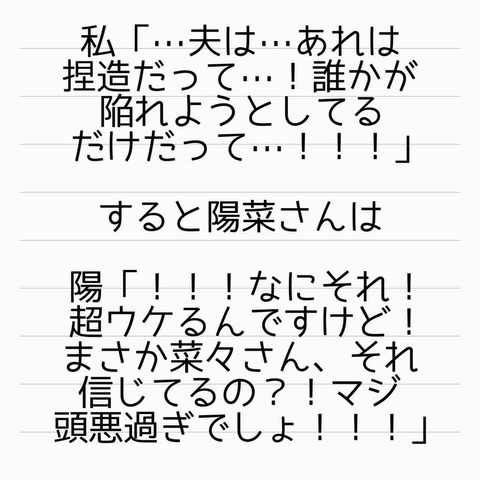 私「…夫は…あれは
捏造だって…！誰かが
陥れようとしてる
だけだって…！！！」
すると陽菜さんは
陽「！！！なにそれ！
超ウケるんですけど！
まさか菜々さん、それ
信じてるの？！マジ
頭悪過ぎでしょ！！！」